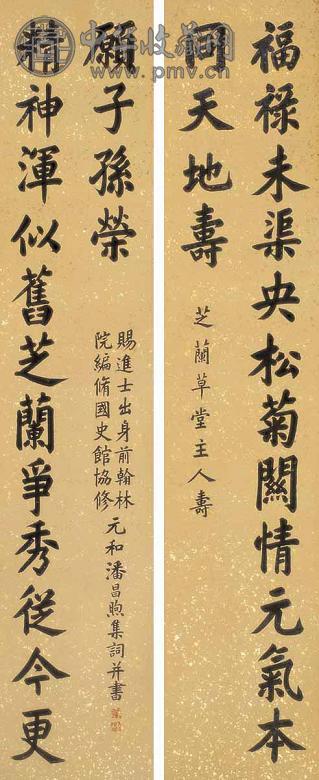 中华收藏网
www.pmv.cn
福祿未渠央松菊關情元氣本
同天地壽
芝蘭草堂主人壽
精神渾似舊芝蘭爭秀從今更
願子孫榮
賜進士出身前翰林
院編脩國史館協修
元和潘昌煦集詞并書